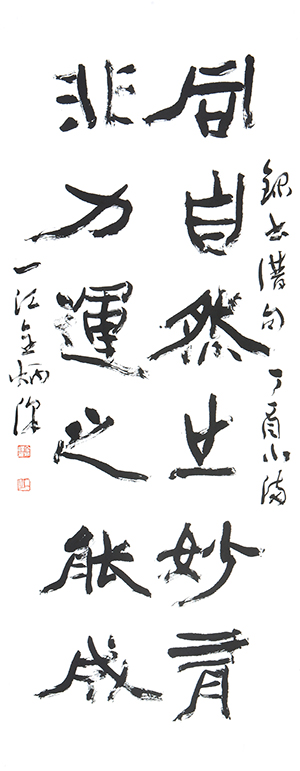 錄書譜句 丁酉小滿
同自然之妙有
非力運之能成
一江金炳